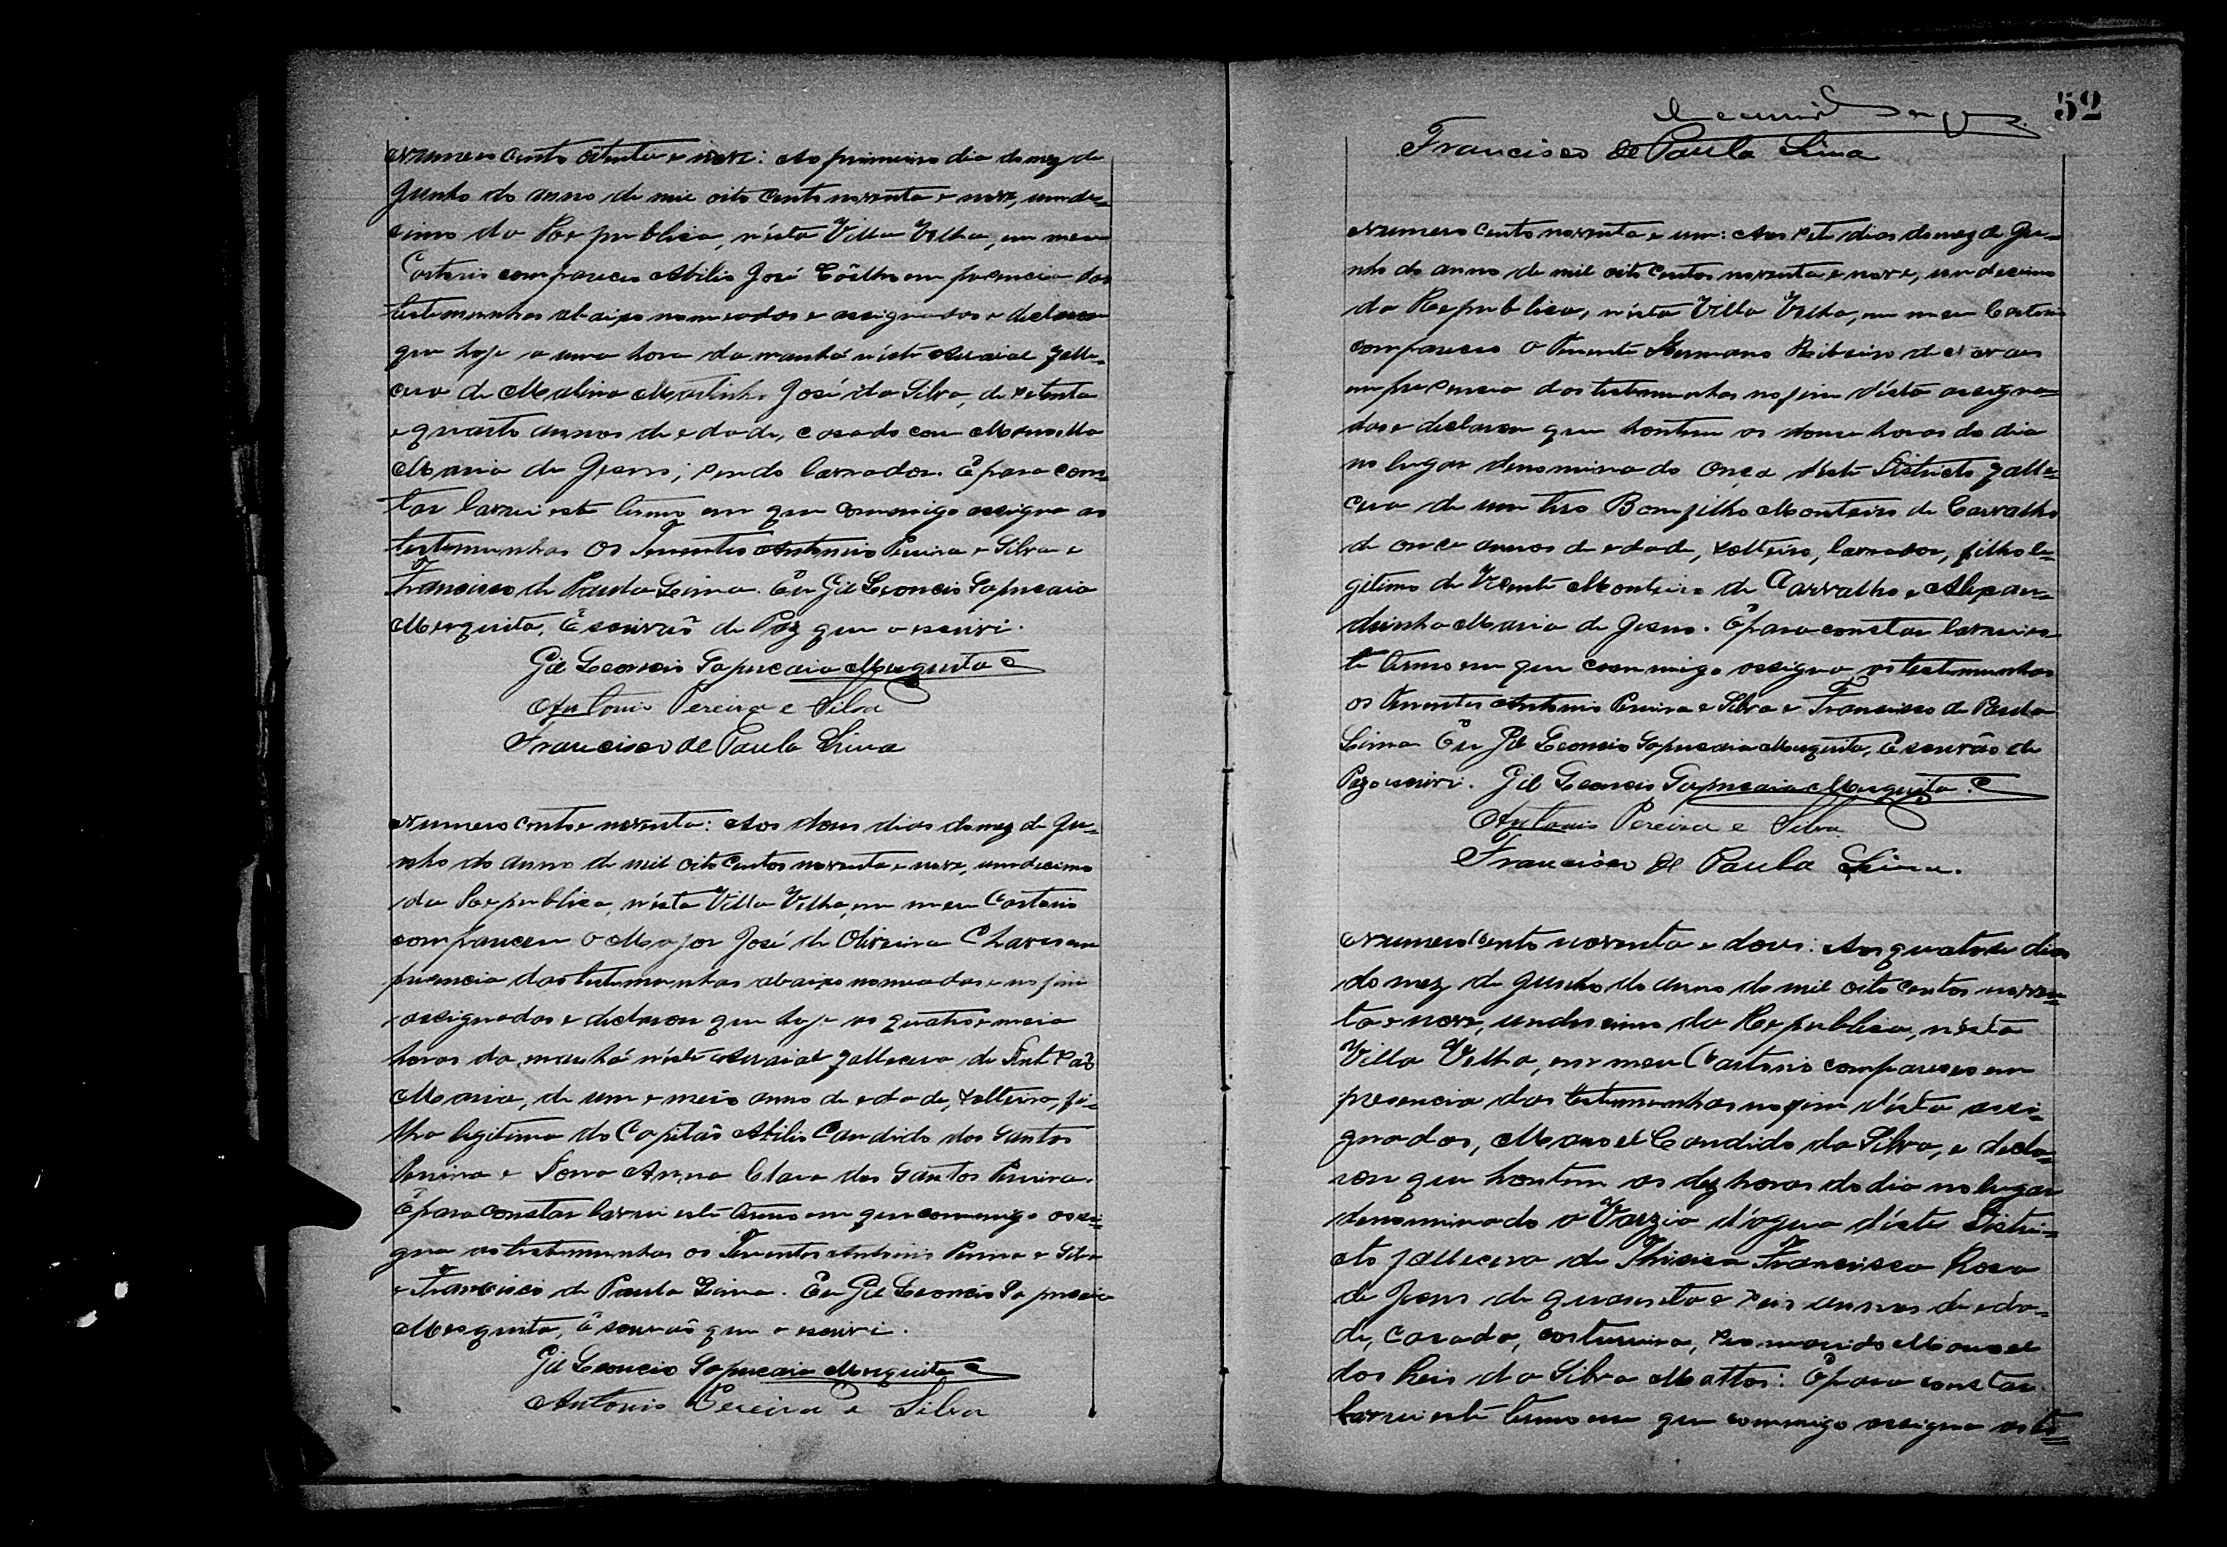 Numero cento oitenta e nove: Ao primeiro dia do mez de
Junho do anno de mil oito centos noventa e nove, unde=
cimo da Republica, nésta Villa Velha, em meu
Cartorio compareceu Abilio José Coêlho em presencia das
testemunhas abaixo nomeadas e assignadas e declarou
que hoje a uma hora da manhã néste Arraial falle=
ceu de Malina Martinho José da Silva, de setenta
e quatro annos de edade, casado com Manoella
Maria de Jesus; sendo lavrador. E para cons=
tar lavrei este termo em que commigo assigna as
testemunhas os Tenentes Antonio Pereira e Silva e
Francisco de Paula Lima. Eu Gil Leoncio Sapucaia
Mesquita, Escrivão de Paz que o escrevi.
Gil Leoncio Sapucaia Mesquita
Antonio Pereira e Silva
Francisco de Paula Lima
Numero cento e noventa: Aos dous dias do mez de Ju=
nho do anno de mil oito centos noventa e nove, undecimo
da Republica, nésta Villa Velha, em meu Cartorio
compareceu o Major José de Oliveira Chaves em
presencia das testemunhas abaixo nomeadas e no fim
assignadas e declarou que hoje as quatro e meia
horas da manhã néste Arraial falleceu de
Maria, de um e meio anno de edade, solteira, fi=
lha legitima do Capitão Abilio Candido dos Santos
Pereira e Dona Anna Clara dos Santos Pereira.
E para constar lavrei este termo em que commigo assi=
gna as testemunhas os Tenentes Antonio Pereira e Silva
e Francisco de Paula Lima. Eu Gil Leoncio Sapucaia
Mesquita, Escrivão que o escrevi.
Gil Leoncio Sapucaia Mesquita
Antonio Pereira e Silva
52
Francisco de Paula Lima
Numero cento noventa e um: Aos sete dias do mez de Ju=
nho do anno de mil oito centos noventa e nove, undecimo
da Republica, nésta Villa Velha, em meu Cartorio
compareceu o Tenente Germano Ribeiro de Novaes
em presencia das testemunhas no fim désta assigna=
das e declarou que hontem as horas do dia
no lugar denominado Onça déste Districto falle=
ceu de um tiro Bomfilho Monteiro de Carvalho
de onze annos de edade, solteiro, lavrador, filho le=
gitimo de Vicente Monteiro de Carvalho e Alexan=
drinha Maria de Jesus. E para constar lavrei es=
te termo em que commigo assigna as testemunhas
os Tenentes Antonio Pereira e Silva e Francisco de Paula
Lima Eu Gil Leoncio Sapucaia Mesquita, Escrivão de
Paz o escrevi. Gil Leoncio Sapucaia Mesquita.
Antonio Pereira e Silva
Francisco de Paula Lima.
Numero cento noventa e dous: Aos quatorze dias
do mez de Junho do anno de mil oito centos noven=
ta e nove, undecimo da Republica, nésta
Villa Velha, em meu Cartorio compareceu em
presencia das testemunhas no fim désta assi=
gnadas, Manoel Candido da Silva, e decla=
rou que hontem as dez horas do dia no lugar
denominado a Varzia d'agua déste Distri=
cto falleceu de Thisica Francisca Rosa
de Jesus de quarenta e seis annos de eda=
de, casada, costureira, seu marido Manoel
dos Reis da Silva Mattos. E para constar
lavrei este termo em que commigo assigna as te=